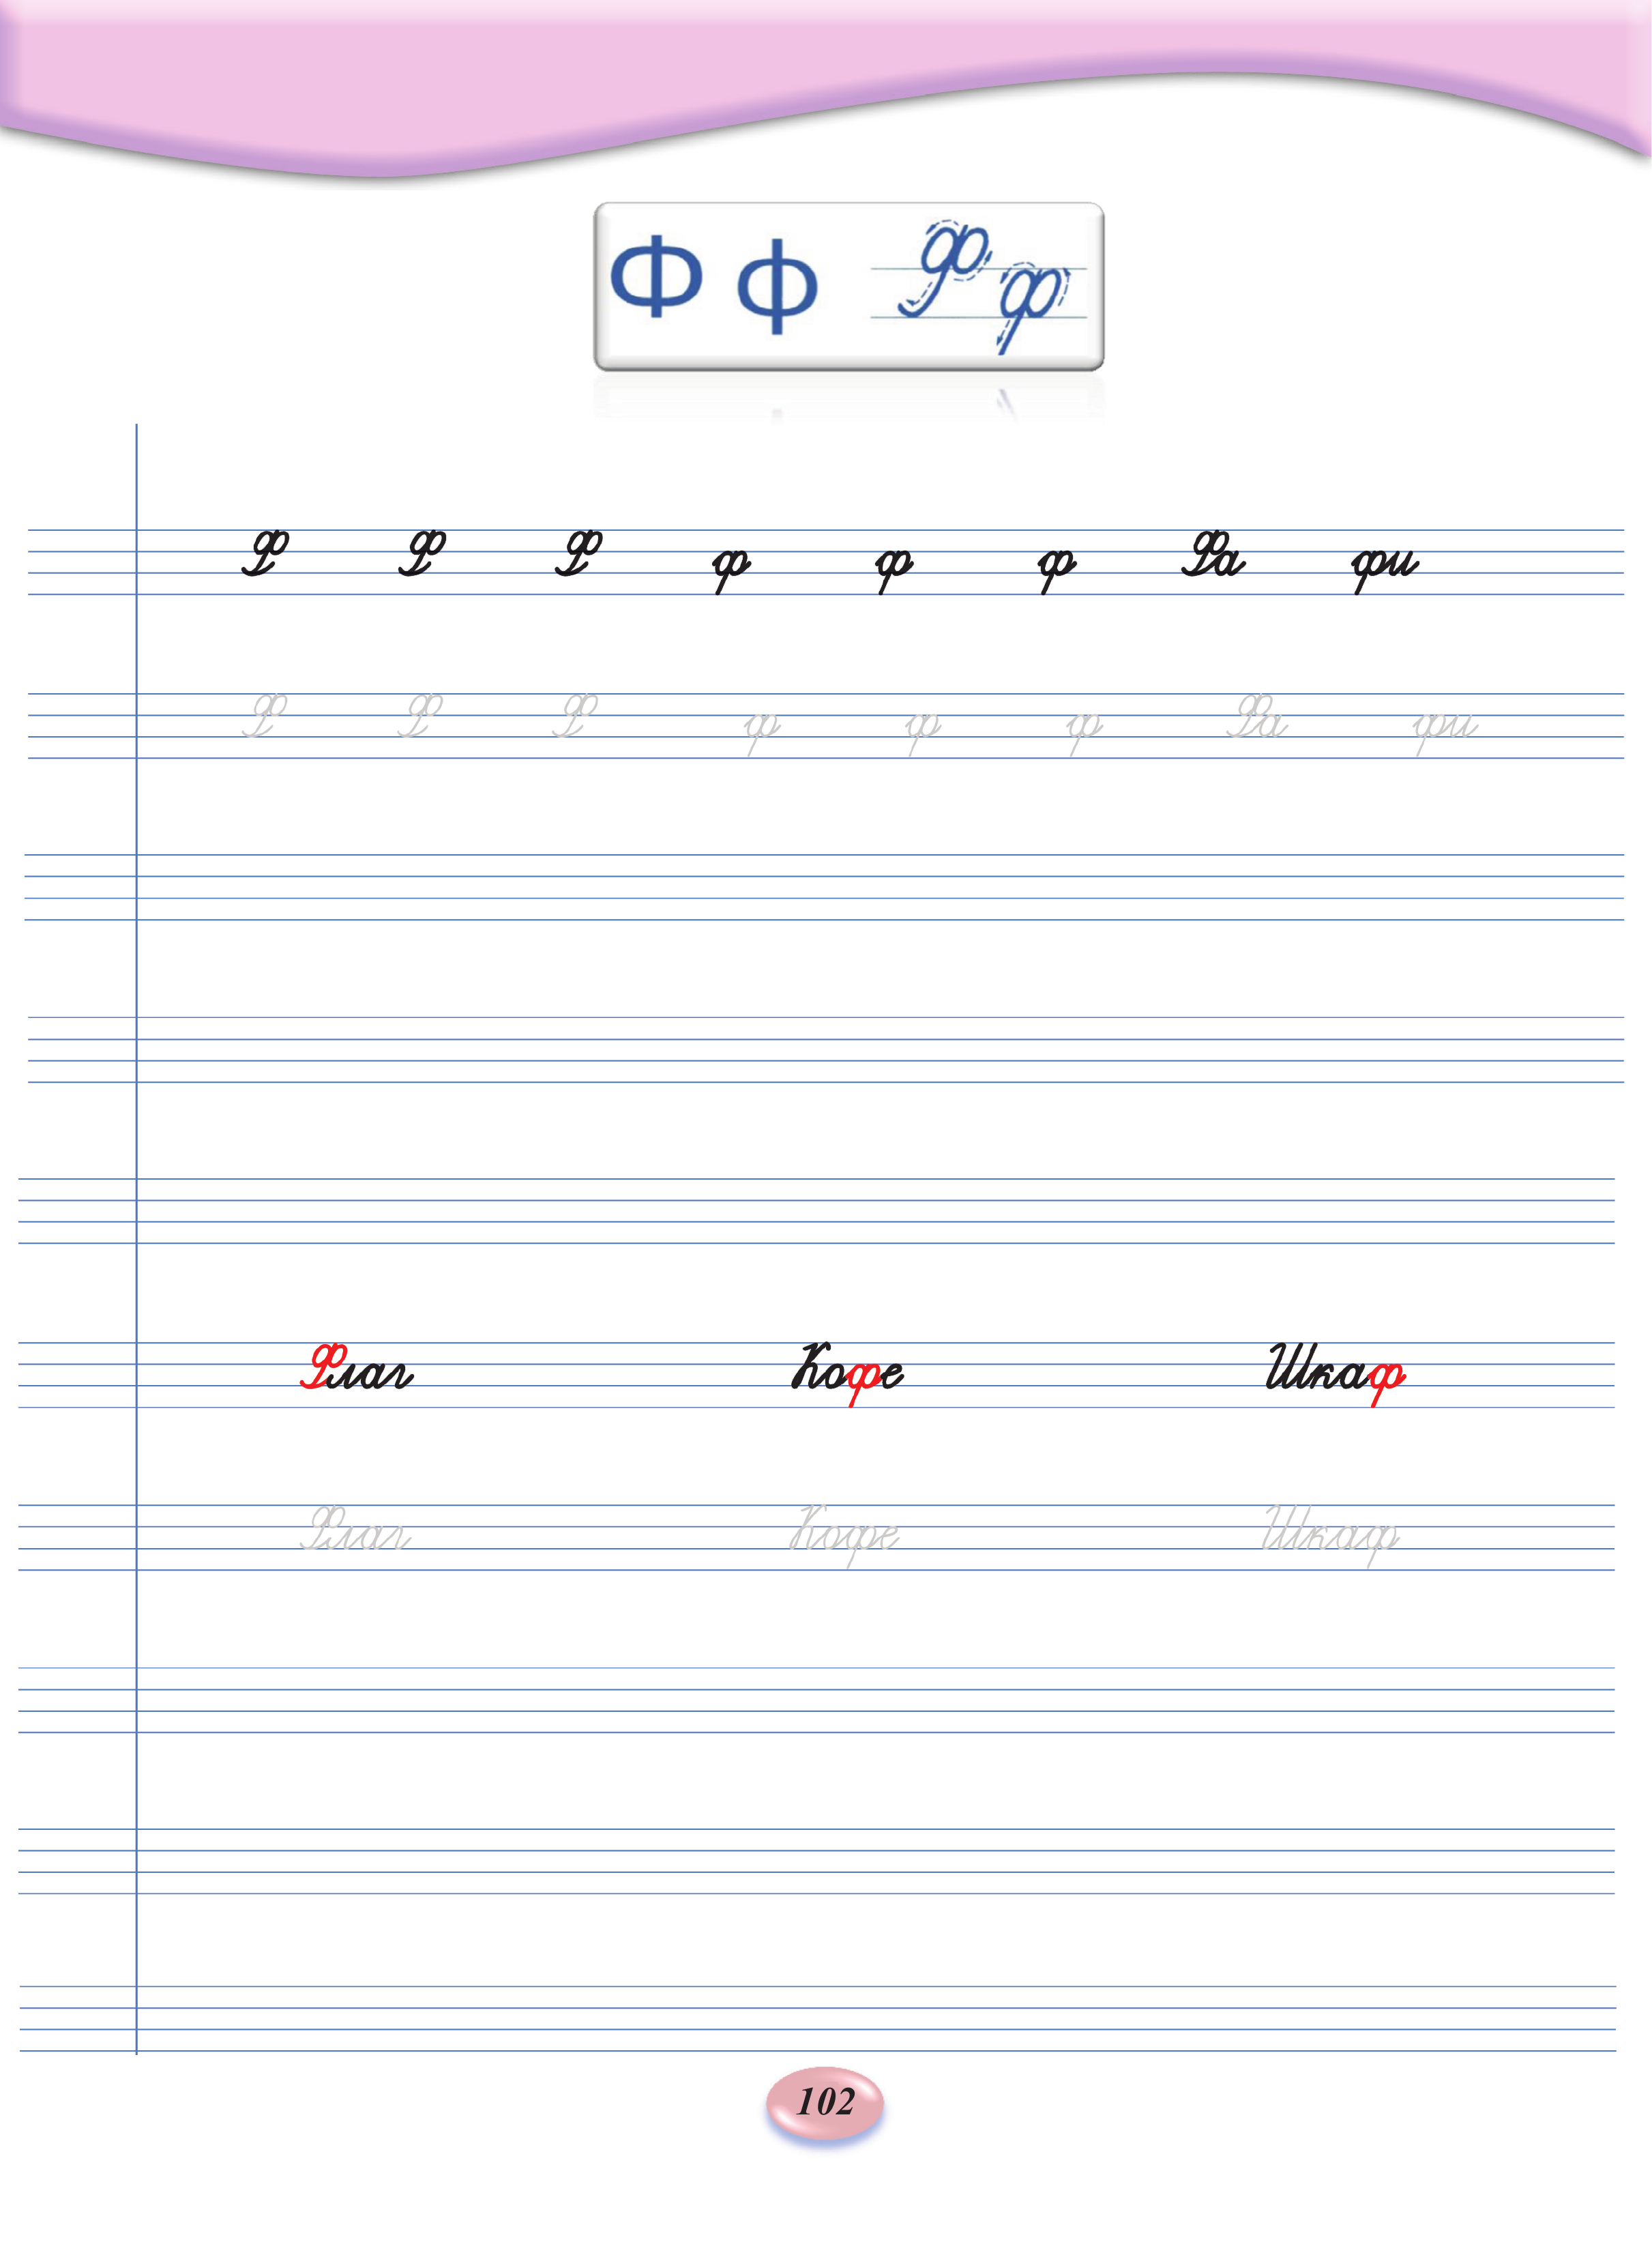 Ф ф Ф ф
Ф Ф Ф ф ф ф Фа фи
Ф Ф Ф ф ф ф Фа фи
Флаг Кофе Шкаф
Флаг Кофе Шкаф
102